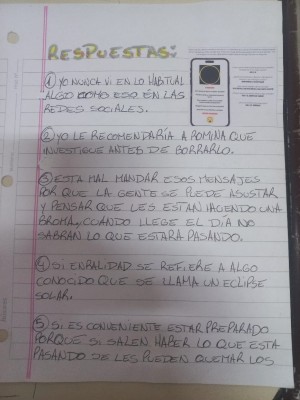 RESPUESTAS:
① YO NUNCA VI EN LO HABITUAL
ALGO COMO ESO EN LAS
REDES SOCIALES.
② YO LE RECOMENDARÍA A ROMINA QUE
INVESTIGUE ANTES DE BORRARLO.
③ ESTA MAL MANDAR ESOS MENSAJES
POR QUE LA GENTE SE PUEDE ASUSTAR
Y PENSAR QUE LES ESTAN HACIENDO UNA
BROMA, CUANDO LLEGE EL DIA NO
SABRAN LO QUE ESTARA PASANDO.
④ SI ENRALIDAD SE REFIERE A ALGO
CONOCIDO QUE SE LLAMA UN ECLIPSE
SOLAR.
⑤ SI ES CONVENIENTE ESTAR PREPARADO
PORQUE SI SALEN HABER LO QUE ESTA
PASANDO SE LES PUEDEN QUEMAR LOS